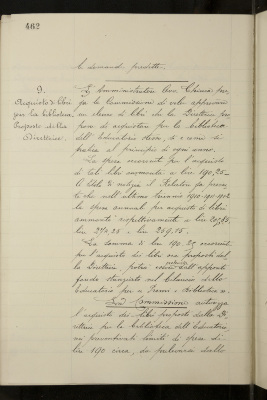 462
le domande predette.
9.
Acquisto di libri
per la biblioteca,
Proposte della
Direttrice.
L'Amministratore Avv. Chierici pre-
ga la Commissione di voler approvare
un elenco di libri che la Direttrice pro-
pone di acquistare per la biblioteca
dell'Educatorio stesso, e come si
pratica al principio di ogni anno.
La spesa occorrente per l'acquisto
di tali libri ammonta a lire 190,25
il Relatore fa presen-
te che nell'ultimo triennio 1900-901-902
la spesa annuale per acquisto di libri
ammontò rispettivamente a lire
lire 270,25 e lire 259,15.
La somma di lire 190.25 occorrente
per l'acquisto dei libri ora proposti dal
la Direttrice, potrà dall'apposito
fondo stanziato nel bilancio dello
Educatorio per "Premi e Biblioteca".
La Commissione autorizza
l'acquisto dei libri proposti dalla Di-
rettrice per la biblioteca dell'Educatorio,
nei preventivati limiti di spesa di
lire 190 circa, da prelevarsi dallo